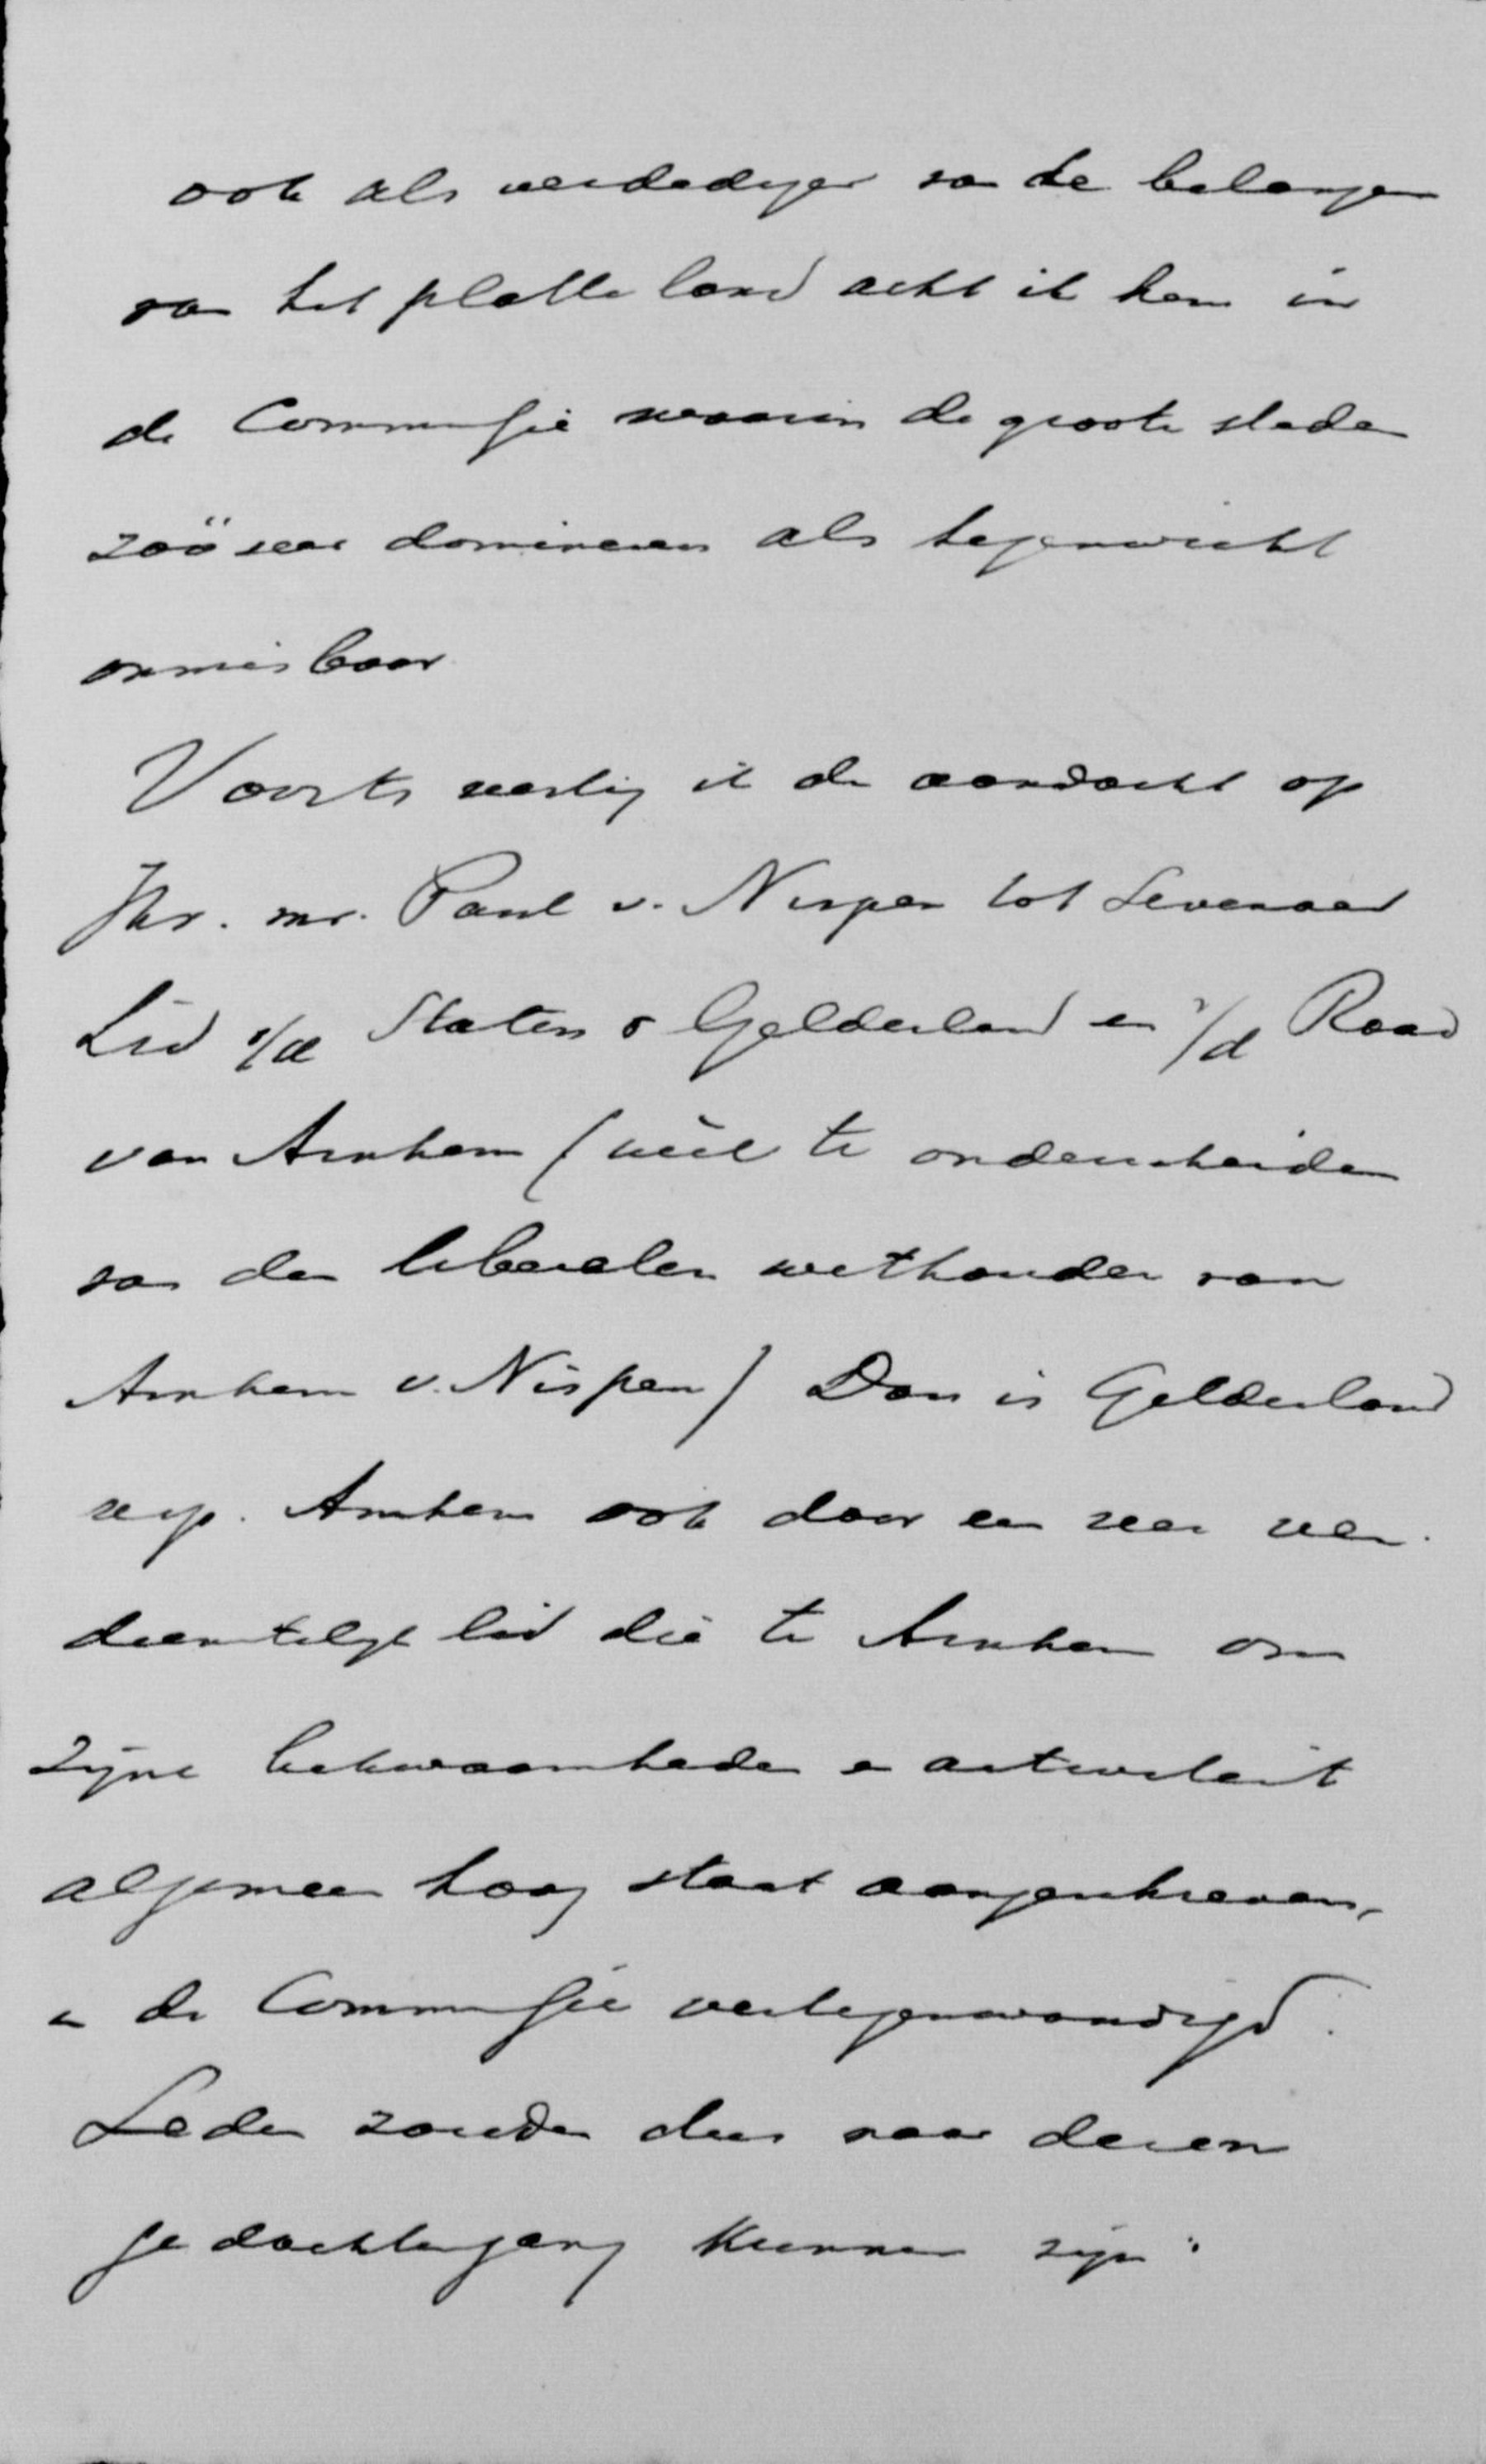 ook als verdediger van de belangen
van het platte land acht ik hem in
de Commissie waarin de groote steden
zoo zeer domineren als tegenwicht
onmisbaar
Voorts vestig ik de aandacht op
Jhr. mr. Paul v. Nispen tot Sevenaer
Lid v/de Staten v Gelderland en v/d Raad
van Arnhem (wèl te onderscheiden
van den liberalen wethouder van
Arnhem v. Nispen) Dan is Gelderland
resp. Arnhem ook door een zeer ver-
dienstelijk lid die te Arnhem om
zijne bekwaamheden en activiteit
algemeen hoog staat aangeschreven,
in de Commissie vertegenwoordigd.
Leden zouden dus naar dezen
gedachtengang kunnen zijn: